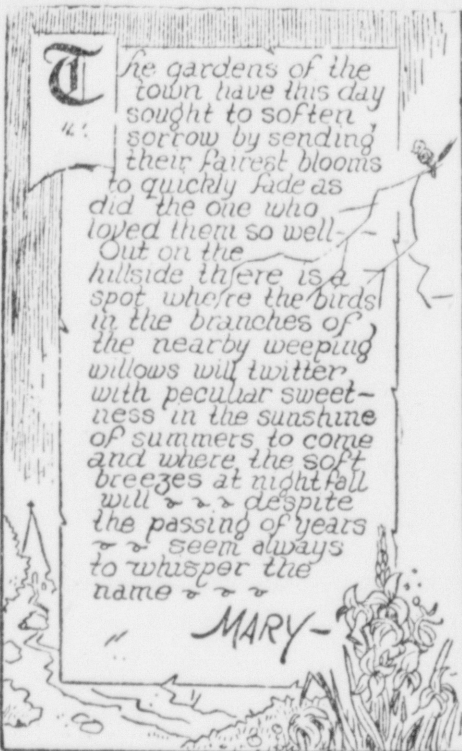 The gardens of the
town have this day
sought to soften
sorrow by sending
their fairest blooms
to quickly fade as
did the one who
loved them so well-
Out on the
hillside there is a
spot where the birds
in the branches of
the nearby weeping
willows will twitter
with peculiar sweet-
ness in the sunshine
of summers to come
and where the soft
breezes at nightfall
will ~ ~ ~ despite
the passing of years
~ ~ seem always
to whisper the
name ~ ~ ~
MARY-